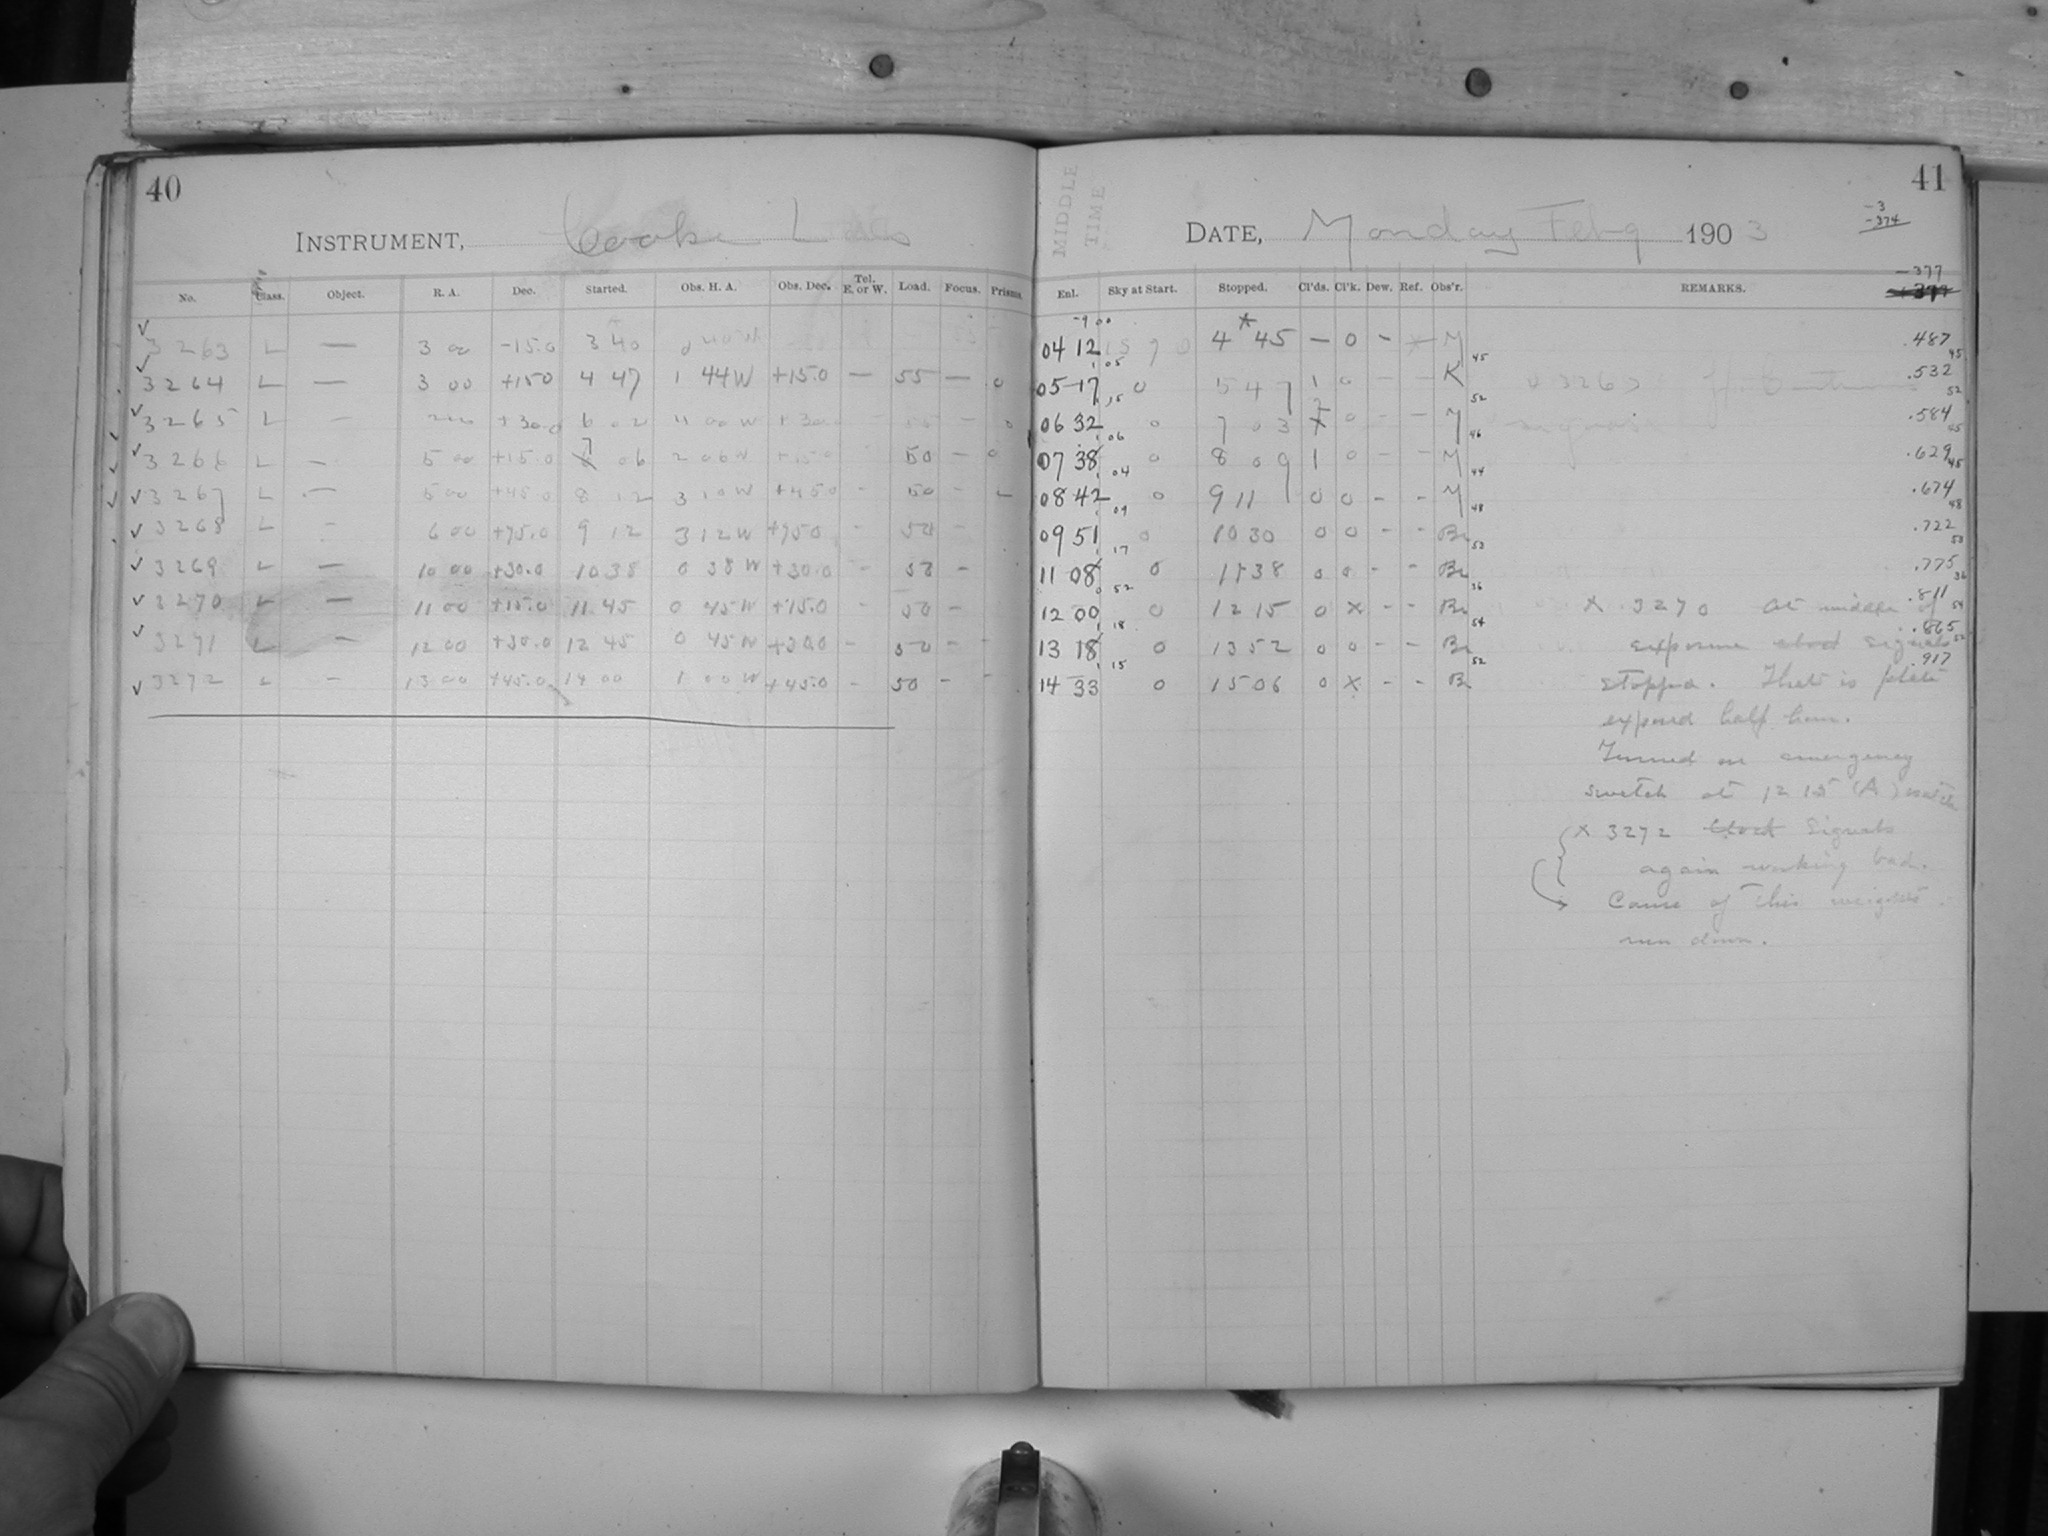 40
INSTRUMENT, Cooke Lens
No. Class. Object. R. A. Dec. Started. Obs. H. A. Obs. Dec. Tel. E. or W. Load. Focus. Prisms.
✓ 3263 L — 3 00 -15.0 3 40 0 40 W
✓ 3264 L — 3 00 +15.0 4 47 1 44 W +15.0 — 55 — 0
✓ 3265 L — +30.0 6 02 W +30.0 0
✓ 3266 L — 5 00 +15.0 7 06 2 06 W +15.0 50 — 0
✓ 3267 L — 5 00 +45.0 8 12 3 10 W +45.0 - 50 -
✓ 3268 L - 6 00 +75.0 9 12 3 12 W +75.0 - 50 -
✓ 3269 L — 10 00 +30.0 10 38 0 38 W +30.0 - 50 -
✓ 3270 L — 11 00 +15.0 11 45 0 45 W +15.0 - 50 -
✓ 3271 L — 12 00 +30.0 12 45 0 45 W +30.0 - 50 - -
✓ 3272 L - 13 00 +45.0 14 00 1 00 W +45.0 - 50 - -
41
MIDDLE TIME
DATE, Monday Feb 9 1903
-3
-374
-377
Enl. Sky at Start. Stopped. Cl'ds. Cl'k. Dew. Ref. Obs'r. REMARKS.
-9 00
04 12 4 45 — 0 - M .487
1 05 45 45
05 17 0 5 47 1 0 - - K .532
1 15 52 52
06 32 0 7 03 0 - - M .584
1 06 46 45
07 38 0 8 09 1 0 - - M .629
1 04 44 45
08 42 0 9 11 0 0 - - M .674
1 09 48 48
09 51 0 10 30 0 0 - - Br .722
1 17 53 53
11 08 0 11 38 0 0 - - Br .775
0 52 36 36
12 00 0 12 15 0 x - - Br x 3270 At middle of .811
1 18 54 54
.865
13 18 0 13 52 0 0 - - Br exposure clock signals
1 15 52 52
.917
14 33 0 15 06 0 x - - Br stopped. That is plate
exposed half hour.
Turned on emergency
switch at 12 15 (A) watch
x 3272 Clock signals
again working bad.
Cause of this weights
run down.